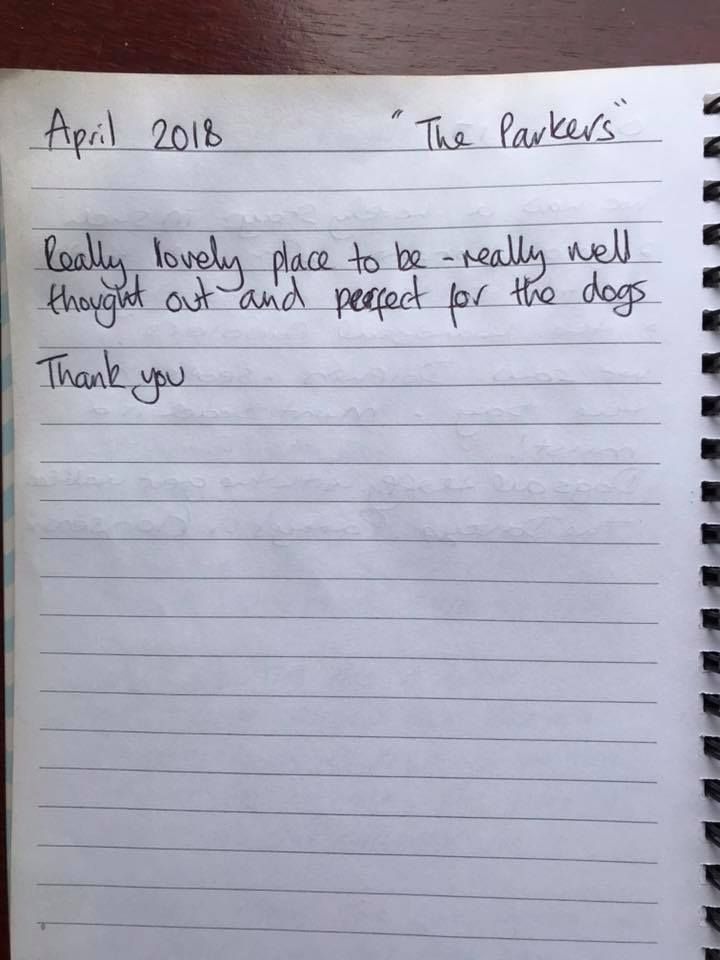 April 2018 "The Parkers"
Really lovely place to be - really well
thought out and perfect for the dogs
Thank you